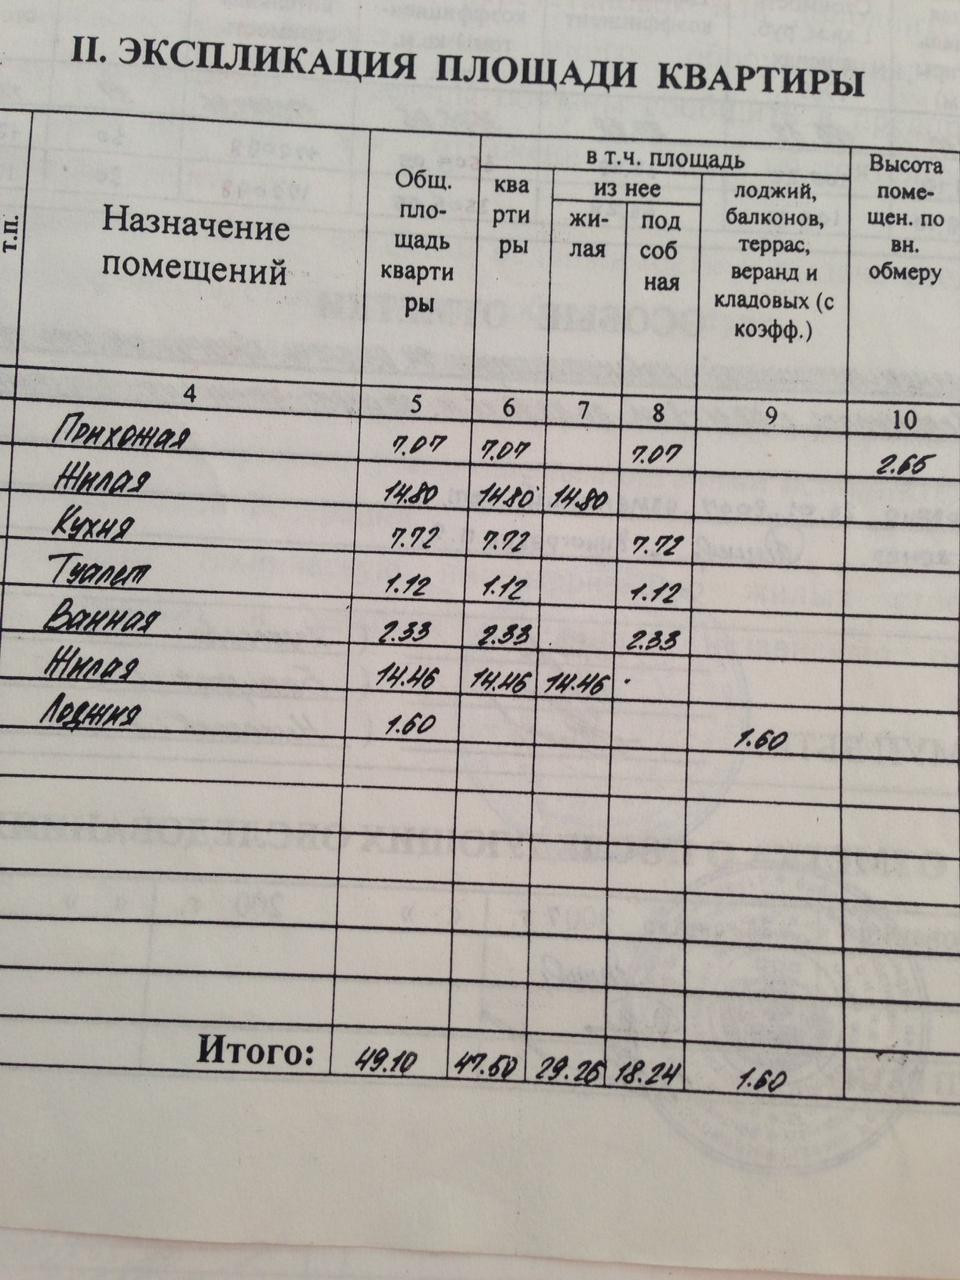 II. ЭКСПЛИКАЦИЯ ПЛОЩАДИ КВАРТИРЫ
т.п.
Назначение
помещений
Общ.
пло-
щадь
кварти
ры
в т.ч. площадь
ква
рти
ры
из нее
жи-
лая
под
соб
ная
лоджий,
балконов,
террас,
веранд и
кладовых (с
коэфф.)
Высота
поме-
щен. по
вн.
обмеру
4 5 6 7 8 9 10
Прихожая 7.07 7.07 7.07 2.65
Жилая 14.80 14.80 14.80
Кухня 7.72 7.72 7.72
Туалет 1.12 1.12 1.12
Ванная 2.33 2.33 2.33
Жилая 14.46 14.46 14.46
Лоджия 1.60 1.60
Итого: 49.10 47.50 29.26 18.24 1.60